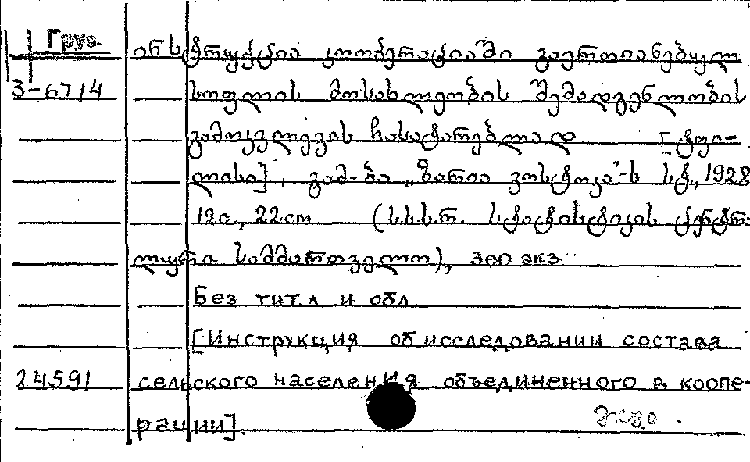 Груз.
ინსტრუქცია კოოპერაციაში გაერთიანებულ
3-6714 სოფლის მოსახლეობის შემადგენლობის
გამოკვლევის ჩასატარებლად [ტფი-
ლისი], გამ-ბა „ზარია ვოსტოკა"-ს სტ, 1928
12с, 22cm (ს.ს.ს.რ. სტატისტიკის ცენტრ.
სამმართველო), 300 экз
Без тит.л и обл
[Инструкция об исследовании состава
24591 сельского населения объединенного в коопе-
рации].